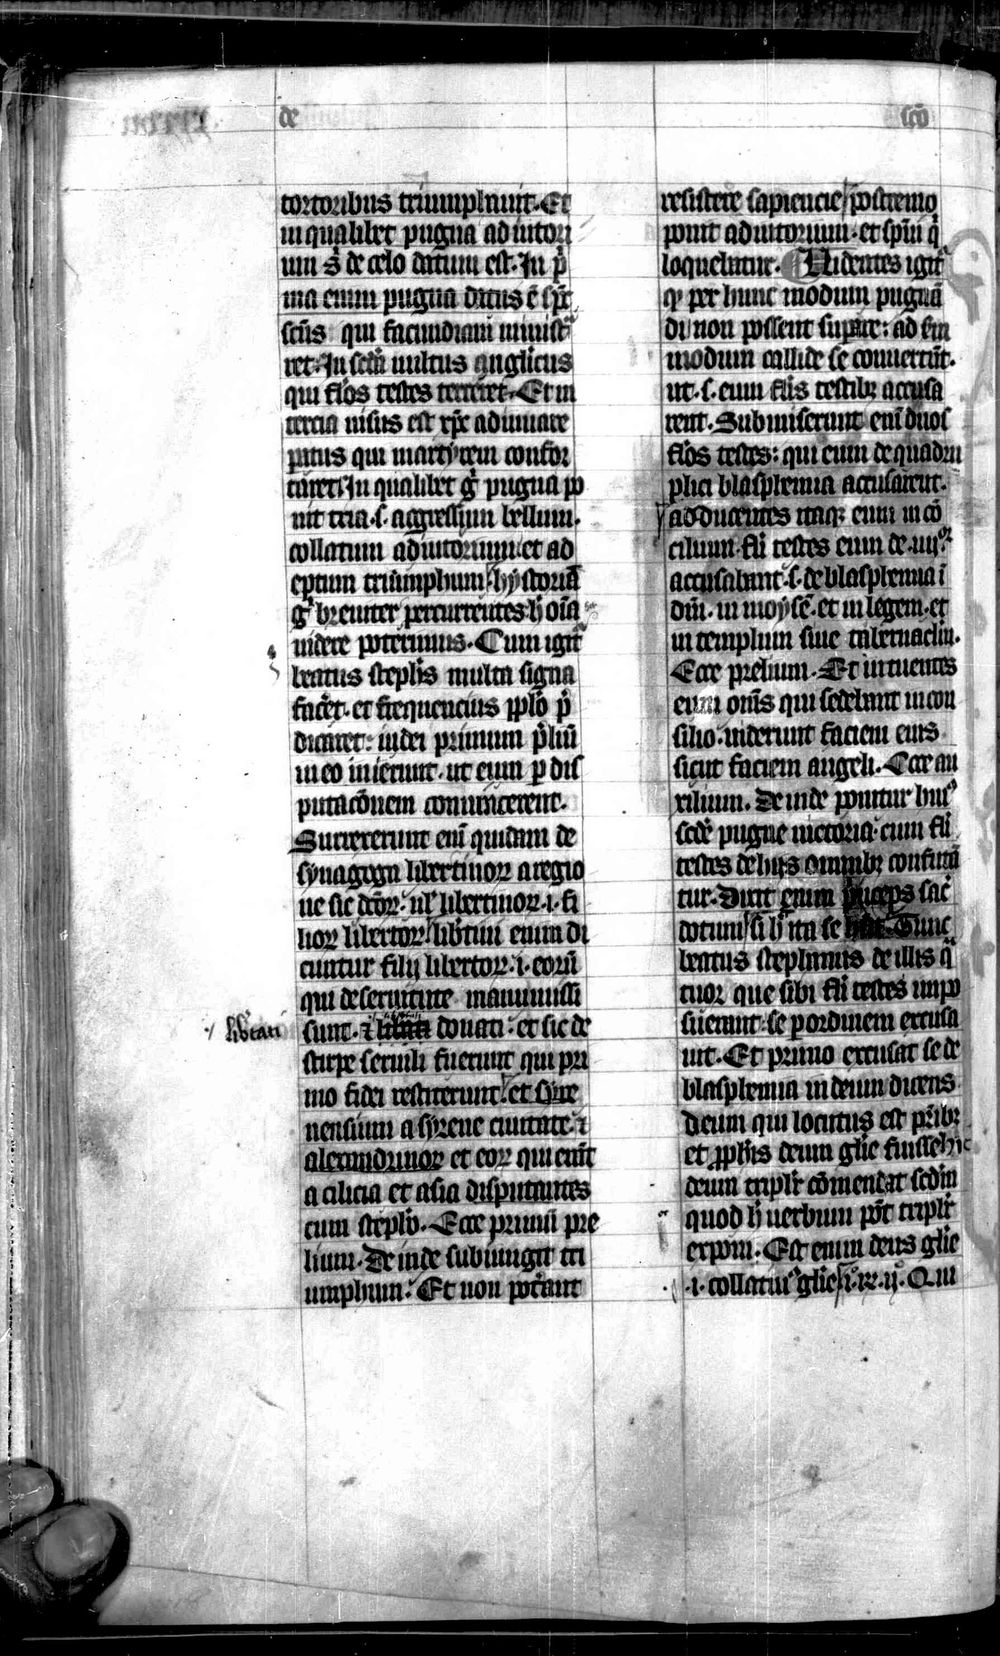 de
sco
tortoribus triumphauit. Et
in qualibet pugna adiutori
um s̄ de celo datum est. In p̄
ma enim pugna datus ē spc̄
scūs qui facundiam minist᷑
ret. In scđa uultus anglicus
qui fl̄os testes terreret. Et in
tercia uisus est xpc̄ adiuuare
paratus qui martyrem confor
taret. In qualibet g̊ pugna po
nit tria .s. aggressum bellum.
collatum adiutorium et ad
eptum triumphum. hystoriā
g̊ breuiter percurrentes h̄ oīa
uidere poterimus. Cum igit᷑
beatus stephs̄ multa signa
facēt. et frequencius pplo p̄
dicaret: iudei primum p̄liū
in eo inierunt. ut eum p dis
putacōnem conuincerent.
Surrexerunt enī quidam de
synagoga libertinoꝝ a regio
ne sic dc̄oꝝ. ul᷑ libertinoꝝ .i. fi
lioꝝ libertoꝝ. lib̄tini enim di
cuntur filij libertoꝝ .i. eorū
qui de seruitute manumissi
libertati
sunt. ⁊ libtati donati. et sic de
stirpe seruili fuerunt qui pri
mo fidei restiterunt. et syre
nensium a syrene ciuitate. ⁊
alexandrinoꝝ et eoꝝ qui erāt
a cilicia et asia disputantes
cum stepho. Ecce primū pre
lium. Deinde subiungit tri
umphum. Et non pot̄ant
resistere sapiencie postremo
ponit adiutorium. et spūi q̊
loquebatur. Uidentes igit᷑
qꝫ per hunc modum pugnā
di non possent supare: ad sm̄
modum callide se conuertūt.
ut .s. eum fl̄is testibꝫ accusa
rent. Submiserunt enī duos
fl̄os testes: qui eum de quadru
plici blasphemia accusarent.
adducentes itaqꝫ eum in cō
cilium. fl̄i testes eum de .iiij᷑
accusabant .s. de blasphemia ī
dm̄. in moysē. et in legem. et
in templum siue tabernaclm̄.
Ecce prelium. Et intuentes
eum om̄s qui sedebant in con
silio. uiderunt faciem eius
sicut faciem angeli. Ecce au
xilium. Deinde ponitur huiꝰ
scđe pugne uictoria. cum fl̄i
testes de hijs omnibꝫ confutā
tur. Dixit enim princeps sac̄
dotum si h̄ ita se hnt. Tunc
beatus stephanus de illis q̊
tuor que sibi fl̄i testes impo
suerant. se p ordinem excusa
uit. Et primo excusat se de
blasphemia in deum dicens
deum qui locutus est pr̄ibꝫ
et ꝓphīs deum glie fuisse hic
deum triplr̄ cōmendat scđm
quod h̄ uerbum pōt triplr̄
exponi. Est enim deus glie
.i. collatiuꝰ glie .i. rꝫ. ij. Qui